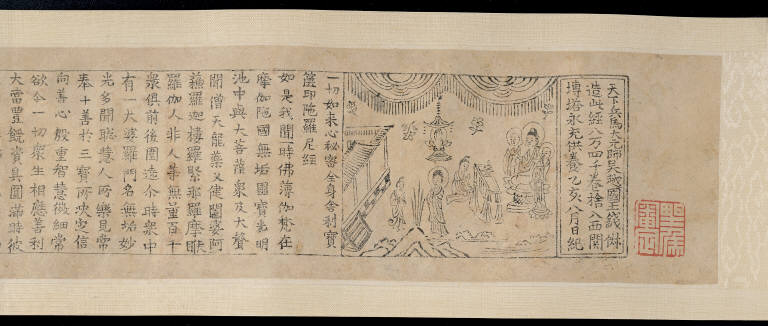 天下兵馬大元帥吳越國王錢俶
造此經八万四千卷捨入西關
塼塔永充供養乙亥八月日紀
一切如来心秘密全身舍利寶
篋印陁羅尼經
如是我聞一時佛薄伽梵在
摩伽陁國無垢園寶光明
池中與大菩薩衆及大聲
聞僧天龍藥叉健闥婆阿
蘓羅迦樓羅緊那羅摩睺
羅伽人非人等無量百千
衆俱前後圍遶尒時衆中
有一大婆羅門名無垢妙
光多聞聡慧人所樂見常
奉十善於三寶所決定信
向善心殷重智慧微細常
欲令一切衆生相應善利
大富豐饒資具圓滿時彼